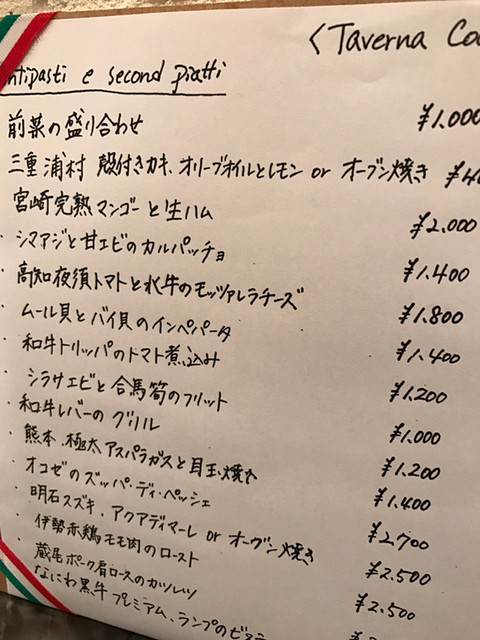 〈Taverna Co
Antipasti e second piatti
前菜の盛り合わせ ¥1.000
三重 浦村 殻付きカキ、オリーブオイルとレモン or オーブン焼き ¥4
宮崎完熟マンゴーと生ハム ¥2.000
・シマアジと甘エビのカルパッチョ ¥1.400
・高知夜須トマトと水牛のモッツァレラチーズ ¥1.800
・ムール貝とバイ貝のインペパータ ¥1.400
・和牛トリッパのトマト煮込み ¥1.200
・シラサエビと合馬筍のフリット ¥1.000
・和牛レバーのグリル ¥1.200
・熊本 極太アスパラガスと目玉焼き ¥1.400
・オコゼのズッパ・ディ・ペッシェ ¥2.700
・明石スズキ、アクアディマーレ or オーヴン焼き ¥2.500
・伊勢赤鶏モモ肉のロースト ¥2.500
・蔵尾ポーク肩ロースのカツレツ
・なにわ黒牛プレミアム、ランプのビステ